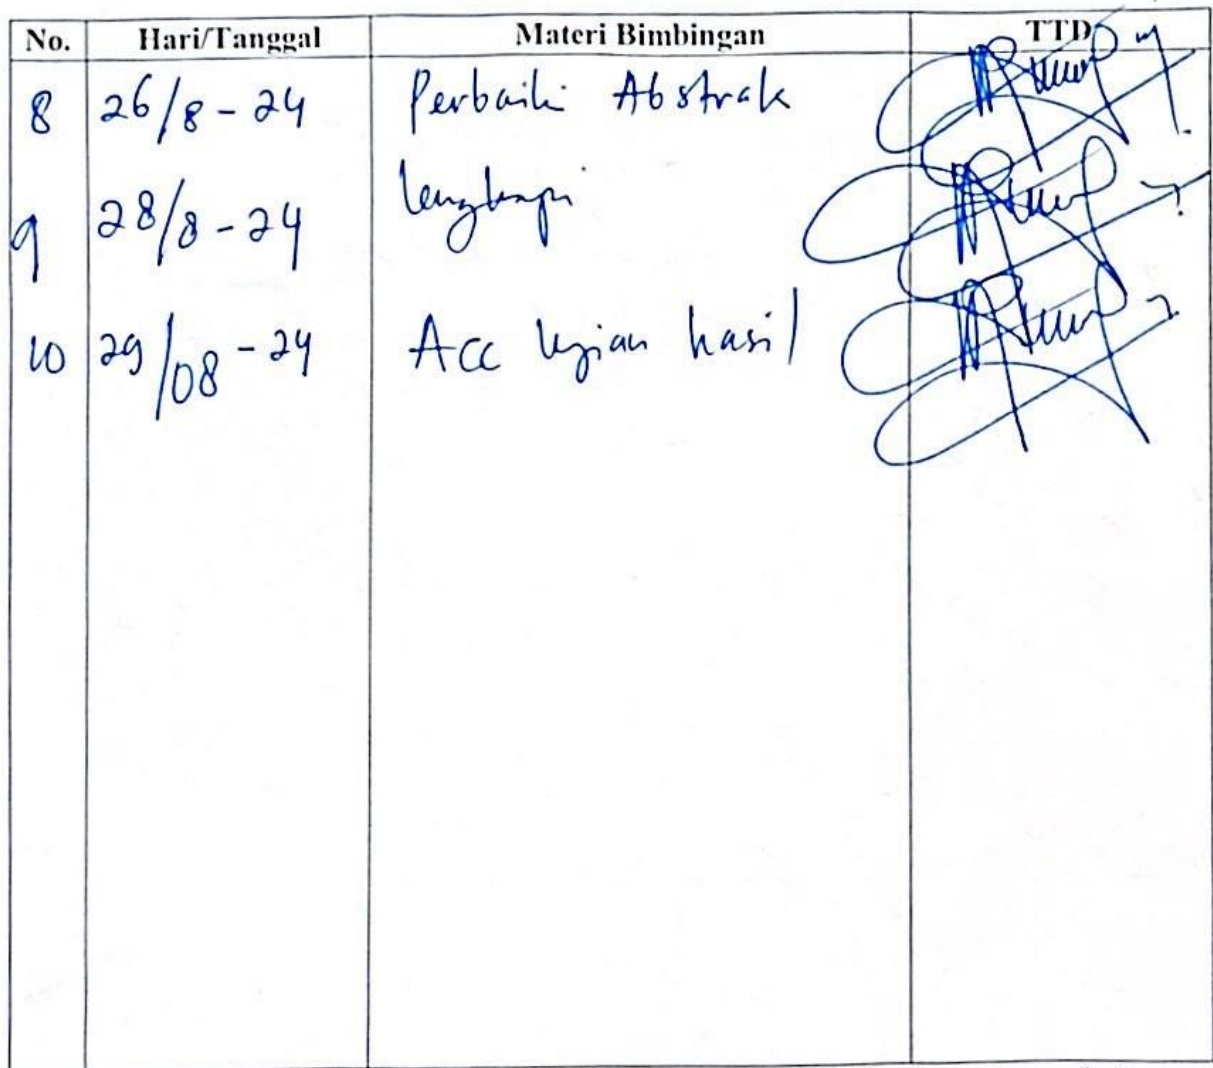 No. Hari/Tanggal Materi Bimbingan TTD
8 26/8-24 Perbaiki Abstrak
9 28/8-24 lengkapi
10 29/08-24 Acc Ujian hasil